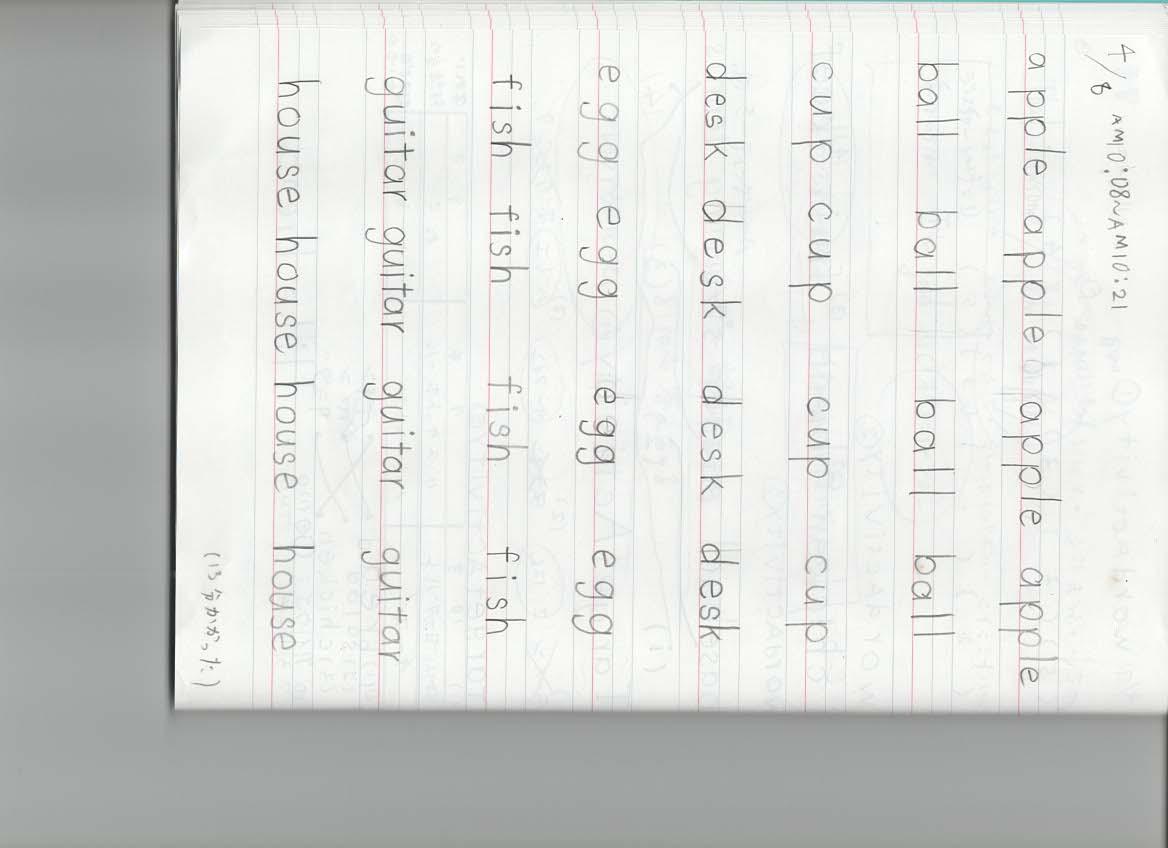 4/8 AM10:08~AM10:21
apple apple apple apple
ball ball ball ball
cup cup cup cup
desk desk desk desk
egg egg egg egg
fish fish fish fish
guitar guitar guitar guitar
house house house house
(13分かかった)